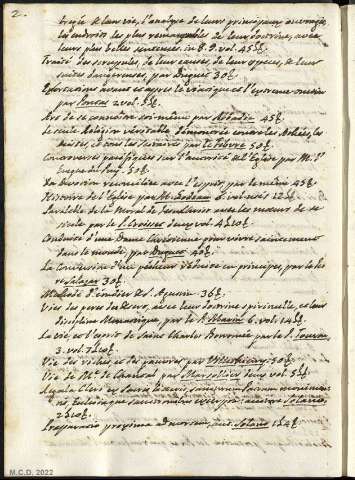 2.
traits de leur vie, l'analyse de leurs principaux ouvrages
les endroits les plus remarquables de leur doctrine, avec
leurs plus belles sentences. in 8. 9. vol. 45ʄ
Traité des scrupules, de leurs causes, de leurs especes, de leurs
suites dangereuses, par Duguet 30ʄ
avant et apres le et l'extreme onction
par 2 vol. 5ʄ
Art de se connoitre soi même par Abadie 45ʄ
La seule Religion véritable, démontrée contre les Athées, les
Deistes, et tous les Sectaires par Le Febvre 50ʄ
Conferences sur l'autorité de l'Eglise par M.
du Puy. 50ʄ
La Devotion reconciliée avec l'esprit, par le même 45ʄ
Histoire de l'Eglise par M. Godeau 6. vol. 12ʄ
Parallele de la Moral de Jesus Christ avec les moeurs de ce
siecle par le P. Croiset deux vol. 4ʄ10ʄ
Conduite d'une Dame Chrétienne pour vivre saintement
dans le monde, par Duguet 40ʄ
La Conversion d'un pécheur réduite en principes, par le P.
de Salazar 30ʄ
Methode d'étudier de S. Agustin 36ʄ
Vies des peres du Desert, avec leur doctrine spirituelle, et leur
discipline Monastique par le P. Marin 6. vol. 14ʄ
La vie, et l'esprit de Saint Charles Borromée par le P. Touron
3. vol. 7ʄ10ʄ
Vie des riches et des pauvres par 50ʄ
Vie de Me. de Chantal par Marsollier deux vol. 5ʄ
auctore Solario
2ʄ10ʄ
Preparatio proxima ad mortem, auct. Solario 1ʄ4ʄ
M.C.D. 2022